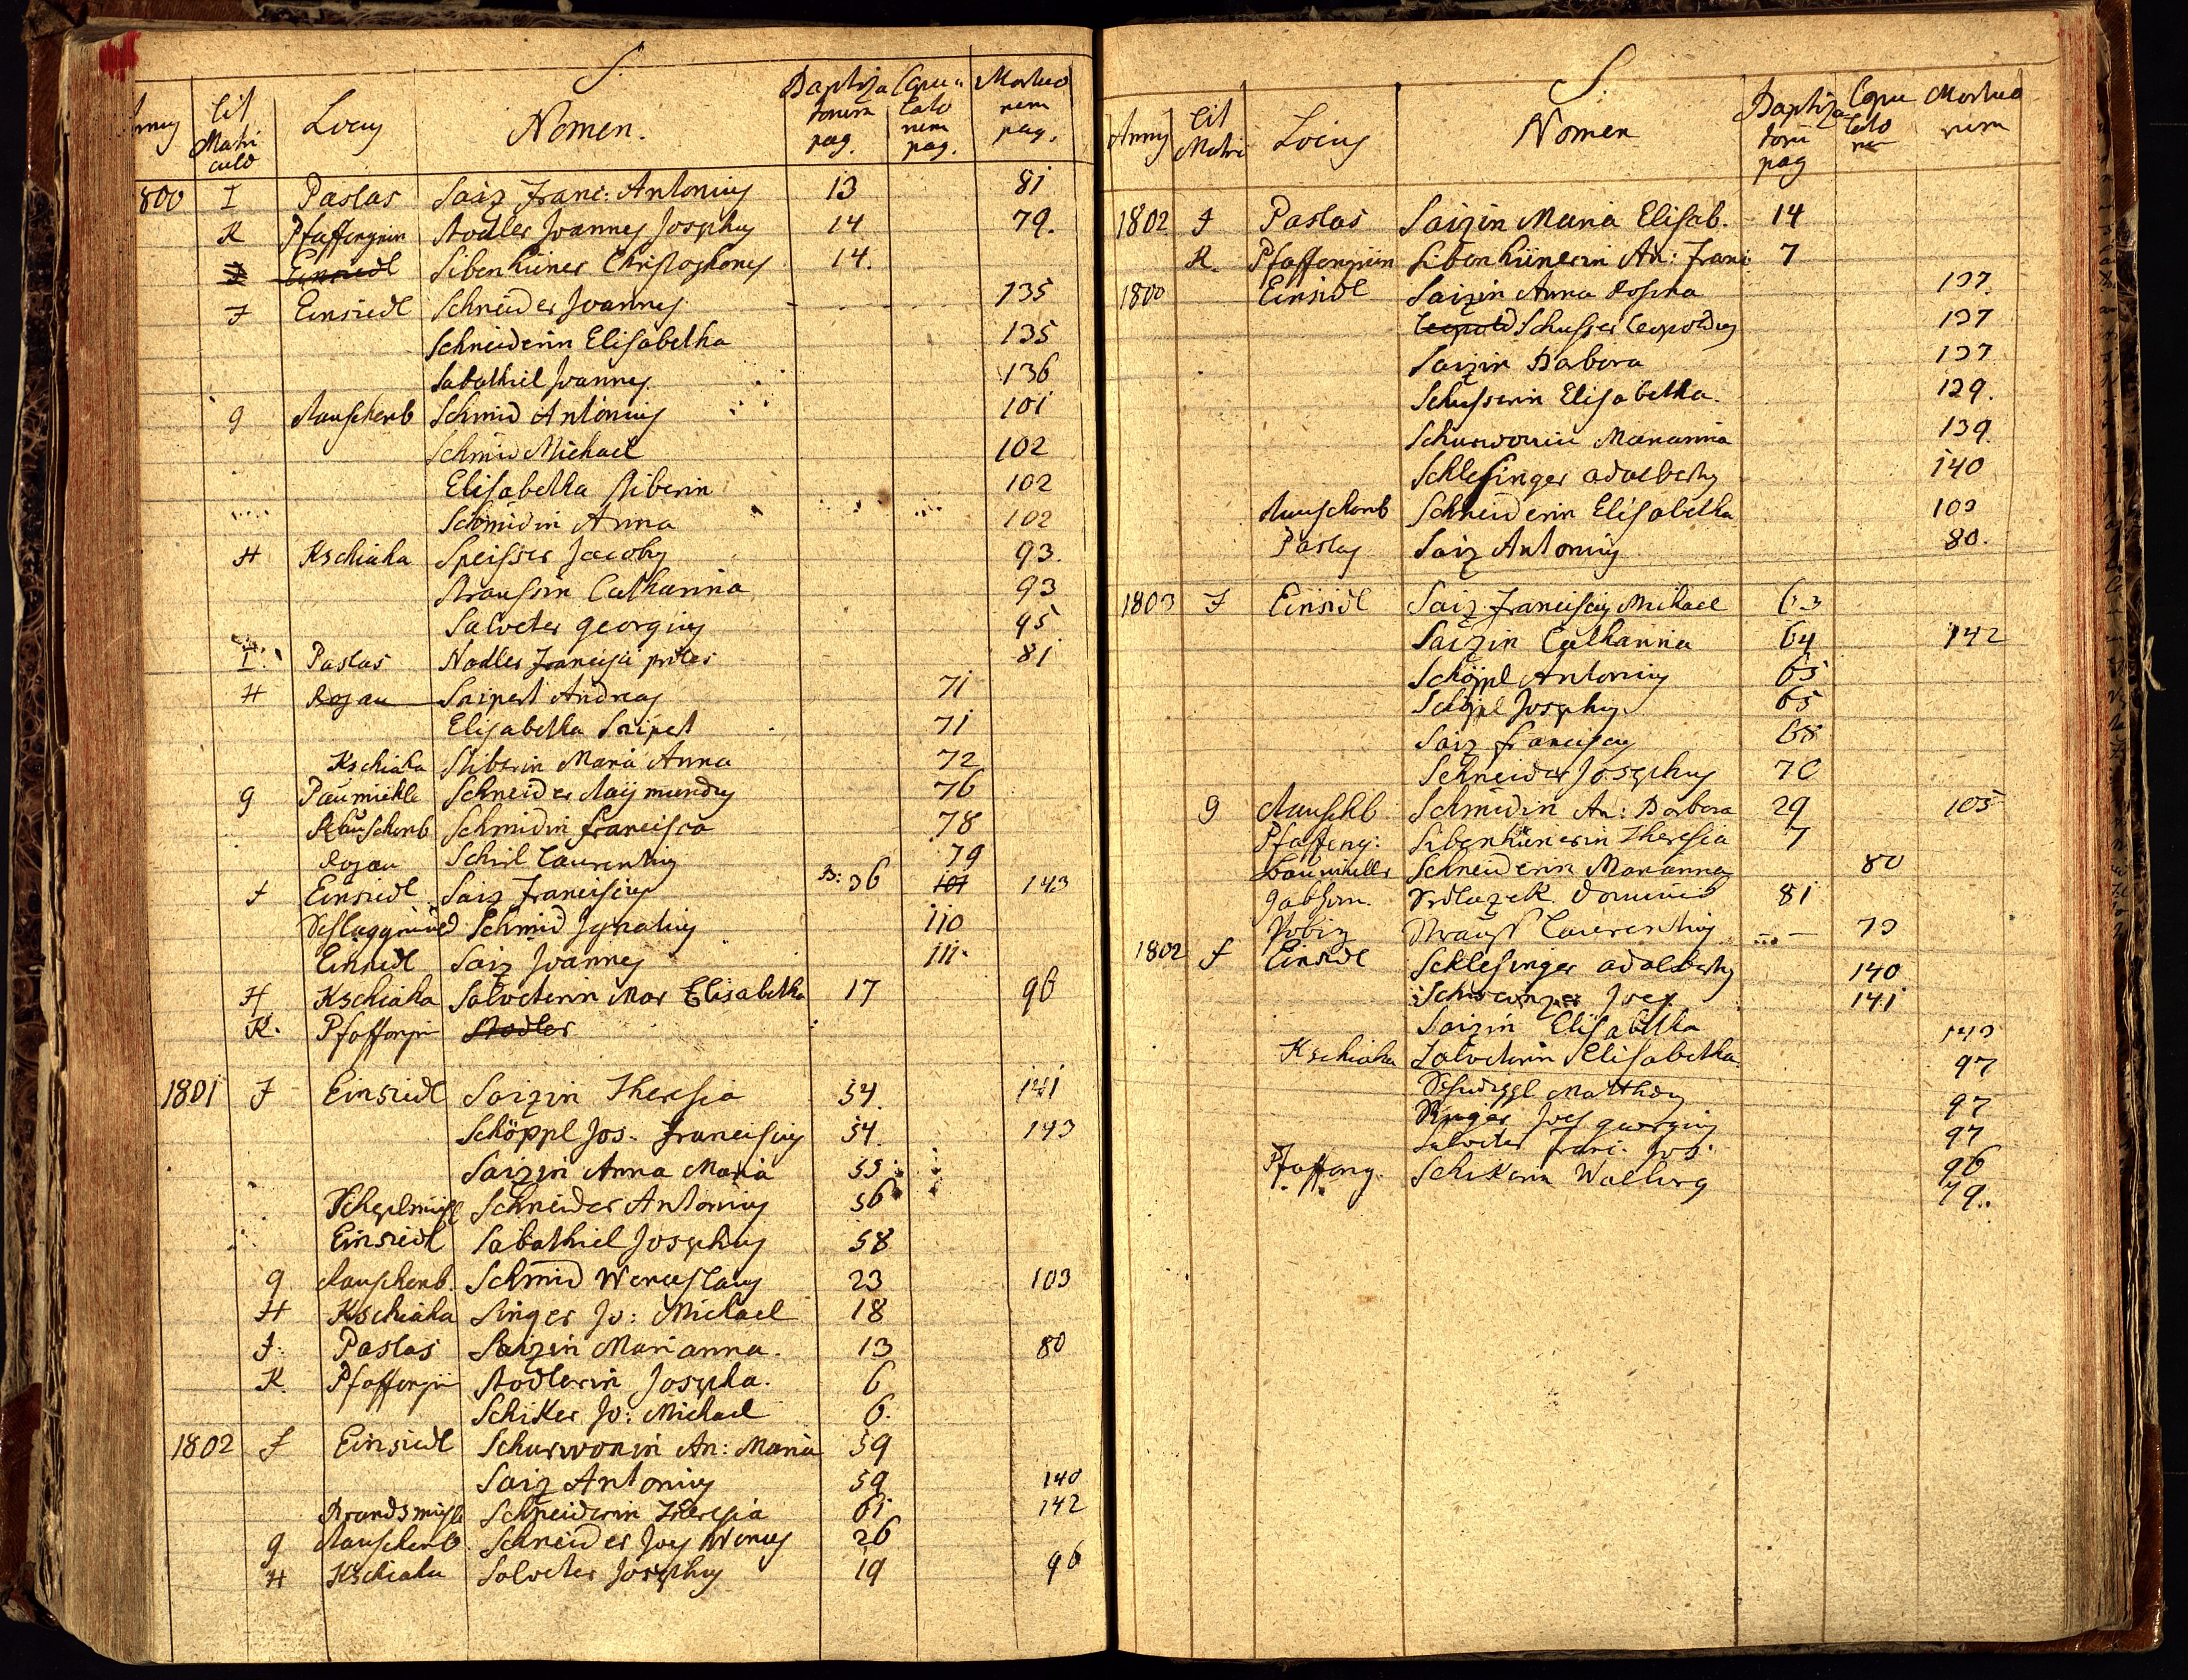 S.
Annus Lit Matriculo Locus Nomen. Baptizatorum pag. Copulatorum pag. Mortuorum pag.
800 I Paslas Saiz Franc: Antonius 13 81
K Pfaffengrün Stodler Joannes Josephus 14 79.
I Einsiedl Sibenhüner Christophorus 14.
F Einsiedl Schneider Joannes - - 135
Schneiderin Elisabetha 135
Sabathiel Joannes 136
g Rauschenb Schmid Antonius 101
Schmid Michael 102
Elisabetha Stiberin 102
Schmidin Anna 102
H Kschiaha Speisser Jacobus 93.
Straussin Catharina 93
Salveter georgius 95
I. Paslas Nadler Francisci proles 81
H Rojau Saipert Andreas 71
Elisabetha Saipert 71
Kschiaha Stiberin Maria Anna 72
g Paumiehle Schneider Raijmundus 76
Rauschenb Schmidin francisca 78
Rojau Schirl Laurentius 79
F Einsiedl Saiz Franciscus B: 36 101 143
Schlaggmied Schmid Ignatius 110
Einsiedl Saiz Joannes 111.
H Kschiaha Salveterin Mar Elisabetha 17 96
K. Pfaffengrü Stodler
1801 F Einsiedl Saizin Theresia 54. 141
Schöppl Jos. Franciscus 54. 143
Saizin Anna Maria 55
Schneider Antonius 56
Einsiedl Sabathiel Josephus 58
g Rauschenb. Schmid Wenceslaus 23 103
H Kschiaha Singer Jo: Michael 18
I. Paslas Saizin Marianna. 13 80
K. Pfaffengrü Stodlerin Josepha. 6
Schiker Jo: Michael 6.
1802 F Einsiedl Schurwonin An: Maria 59
Saiz Antonius 59 140
Brandsmühl Schneiderin Theresia 61 142
g Rauschenb. Schneider Joes Wences 26
H Kschiaha Salveter Josephus 19 96
S.
Annus Lit Matri Locus Nomen Baptizatorum pag Copulatorum Mortuorum
1802 I Paslas Saizin Maria Elisab. 14
K. Pfaffengrün Sibenhünerin An: Franc 7
1800 Einsidl Saizin Anna Rosina 137.
Leopold Schusser Leopoldus 137
Saizin Barbara 137
Schusserin Elisabetha. 129.
Schurwonin Marianna 139.
Schlesinger Adalbertus 140
Rauschenb Schneiderin Elisabetha 103
Paslas Saiz Antonius 80.
1803 F Einsidl Saiz Franciscus Michael 63
Saizin Catharina 64 142
Schöppl Antonius 65
Schöpl Josephus 65
Saiz franciscus 68
Schneider Josephus 70
g Rauschb Schmidin An: Barbara 29 105
Pfaffeng: Sibenhünerin Theresia 7
Baumiller Schneiderin Marianna 80
Jabhorn. Srdlazek Dominic 81
Strauss Laurentius - 79
1802 F Einsidl Schlesinger Adalbertus 140
Joes 141
Saizin Elisabetha 143
Kschiaha Salveterin Elisabetha. 97
Matthaus 97
Singer Joes georgius 97
Salveter Franc. Jos. 96
Pfaffeng. Schikerin Walburg 79.